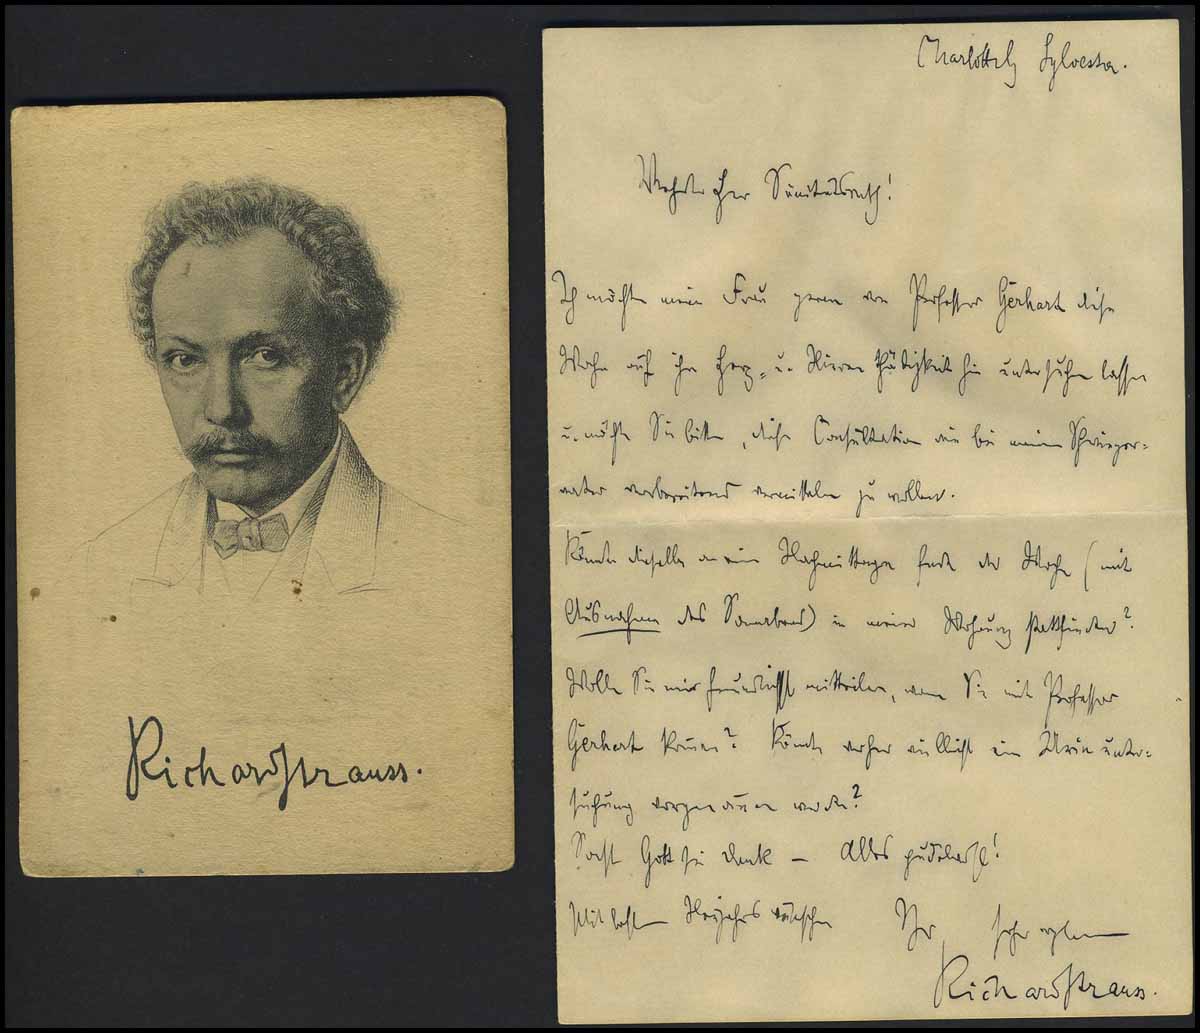 Richard Strauss.
Charlottbg Sylvester.
Verehrter Herr Sanitätsrath!
Ich möchte meine Frau gerne von Professor Gerhart diese
Woche auf ihre Herz- u. Nierenthätigkeit hin untersuchen lassen
u. möchte Sie bitten, diese Consultation wie bei meinem Schwieger-
vater vorbereitend vermitteln zu wollen.
Könnte dieselbe an einem Nachmittage Ende der Woche (mit
Ausnahme des Sonnabend) in meiner Wohnung stattfinden?
Wollen Sie mir freundlichst mitteilen, wann Sie mit Professor
Gerhart kommen? Könnte vorher vielleicht eine Urinunter-
suchung vorgenommen werden?
Sonst Gott sei Dank – Alles pudelwohl!
Mit besten Neujahrswünschen Ihr sehr ergebener
Richard Strauss.